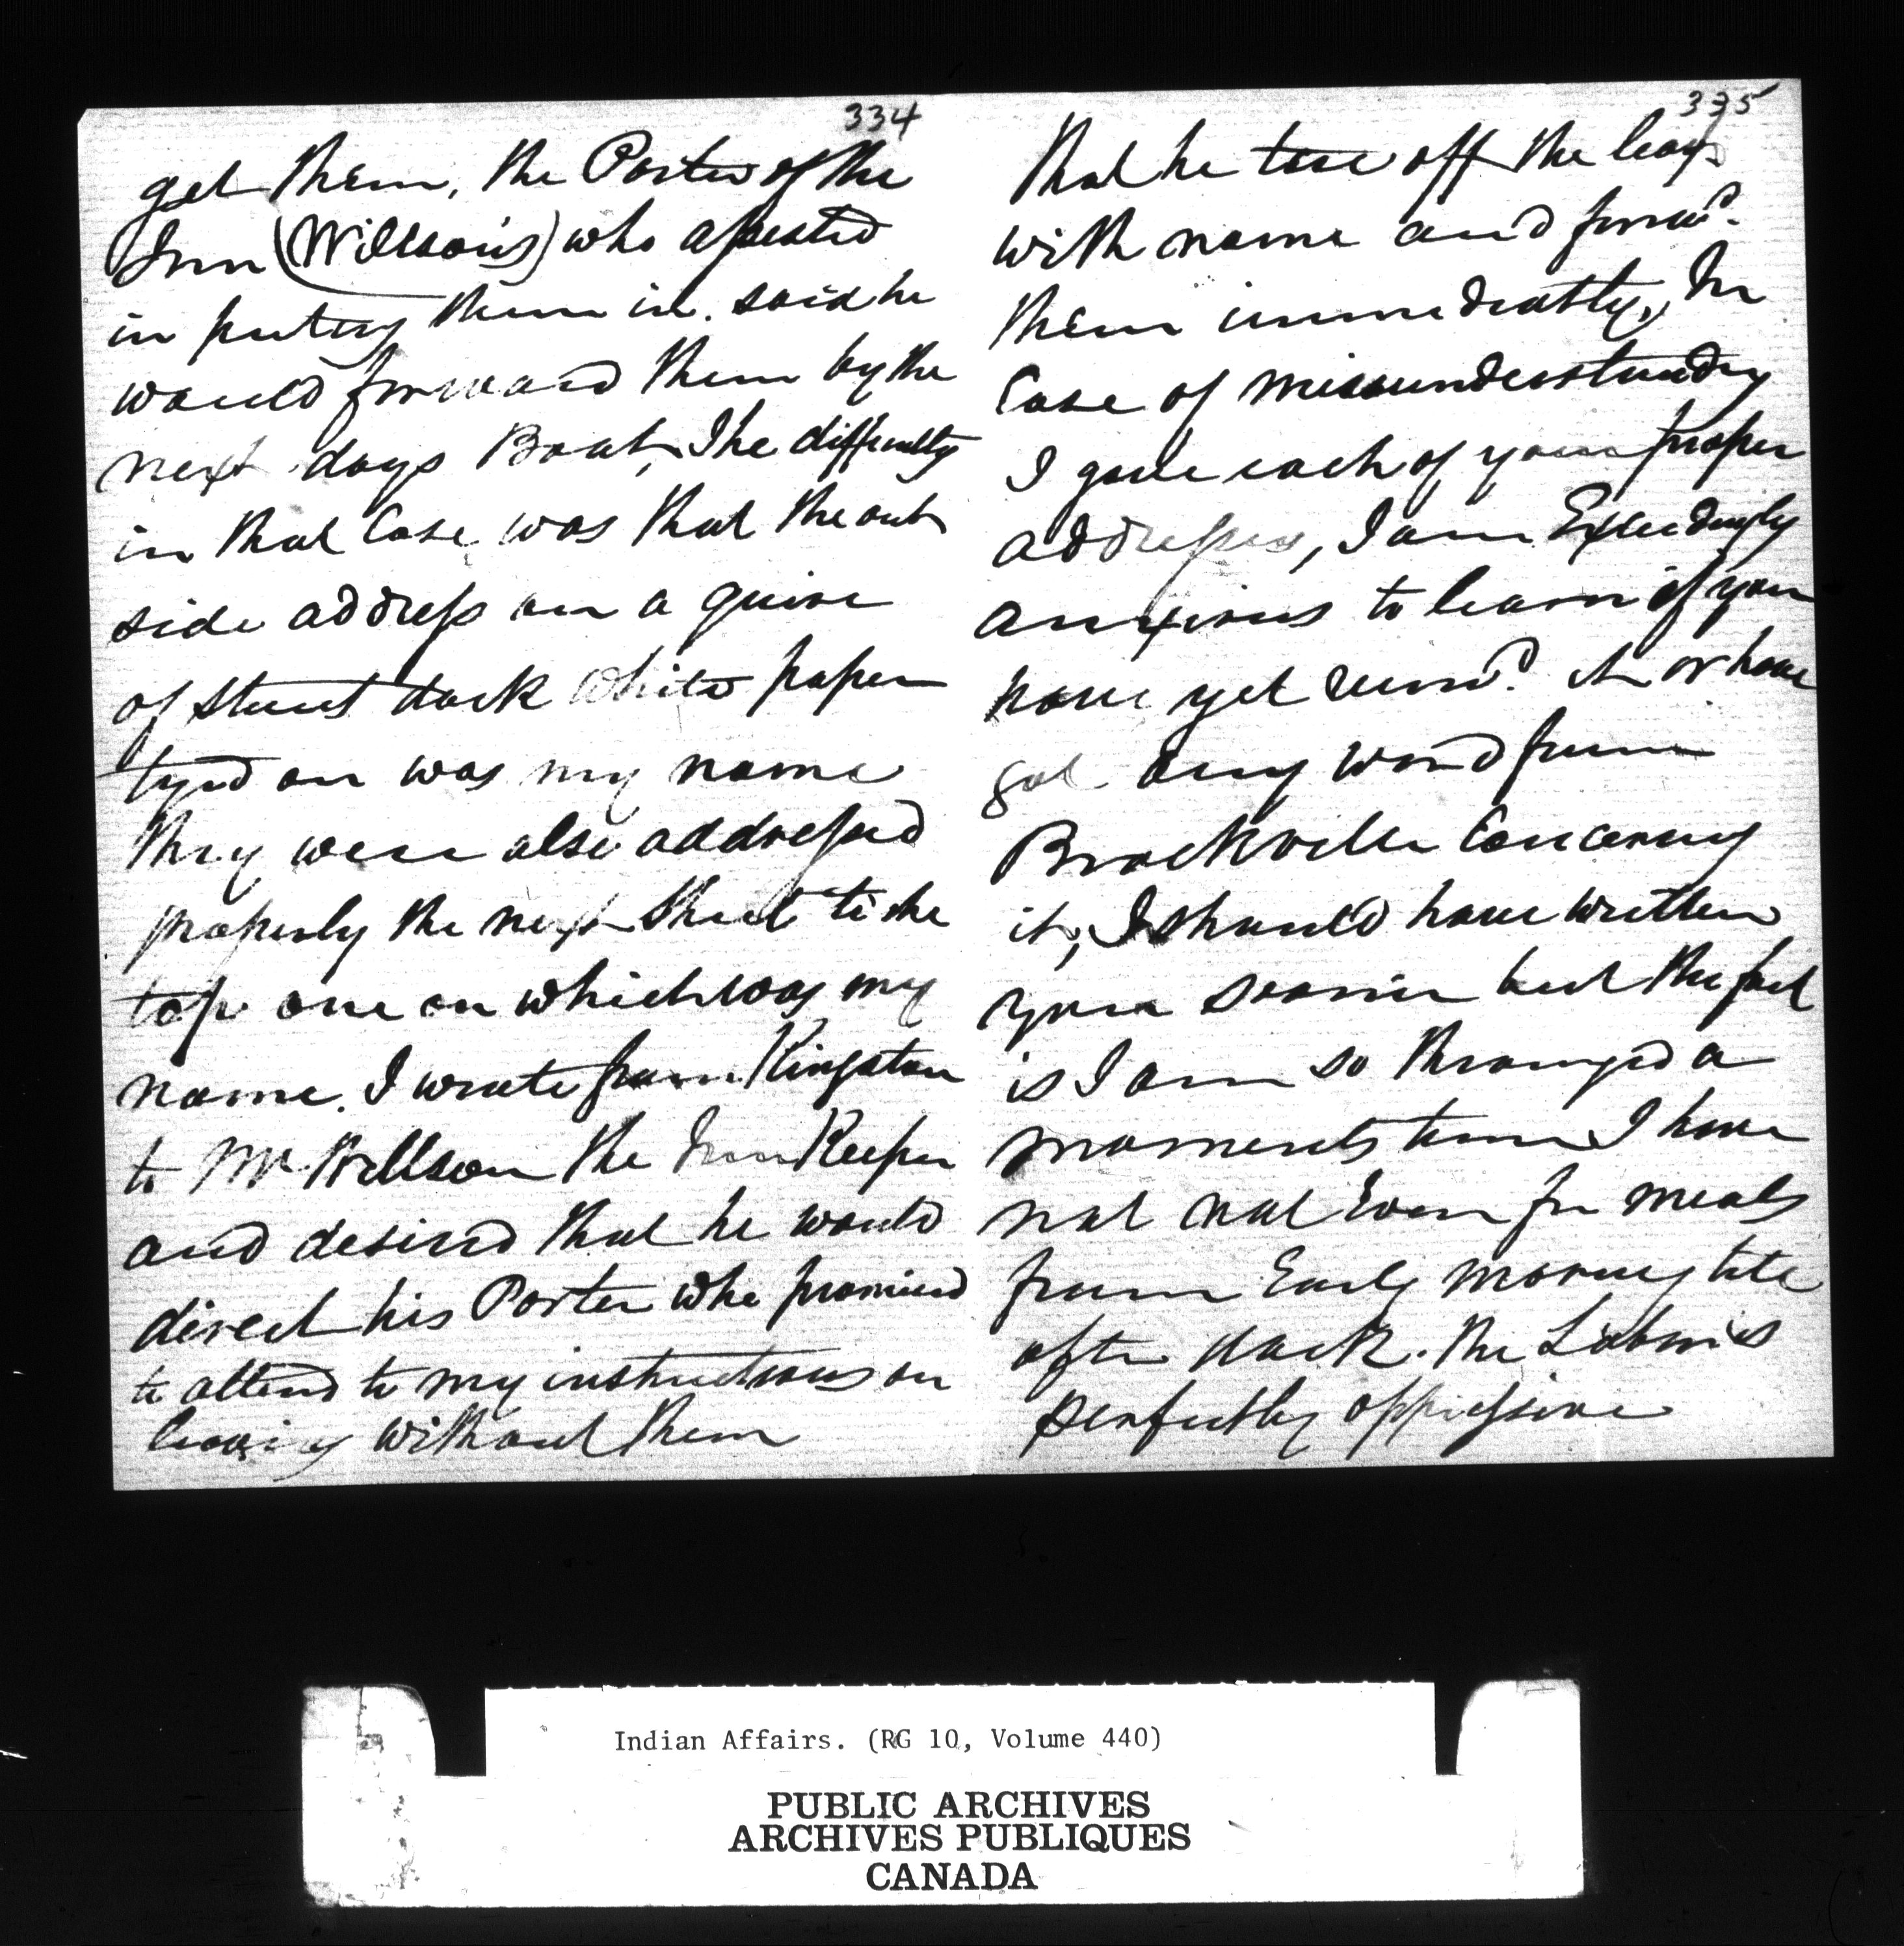 334
get them, the Porter of the
Inn (Willson's) who assisted
in puting them in. said he
would forward them by the
next days Boat, The difficulty
in that Case was that the out
side address on a quire
of stout dark white paper
tyed on was my name
they were also addressed
properly the next sheet to the
top one on which was my
name. I wrote from Kingston
to Mr Willson the Inn Keeper
and desired that he would
direct his Porter who promised
to attend to my instructions on
leaving without them
335
that he tare off the
with name and forwd.
them immediatly, In
Case of misunderstanding
I gave each of your proper
addresses, I am Exceedingly
anxious to learn if you
have yet recivd. it or have
got any word from
Brockville Concerning
it, I should have written
you sooner but the fact
is I am so thronged a
moments time I have
not not Even for meals
from Early morning till
after dark. the Labour is
perfectly oppressive
Indian Affairs. (RG 10, Volume 440)
PUBLIC ARCHIVES
ARCHIVES PUBLIQUES
CANADA